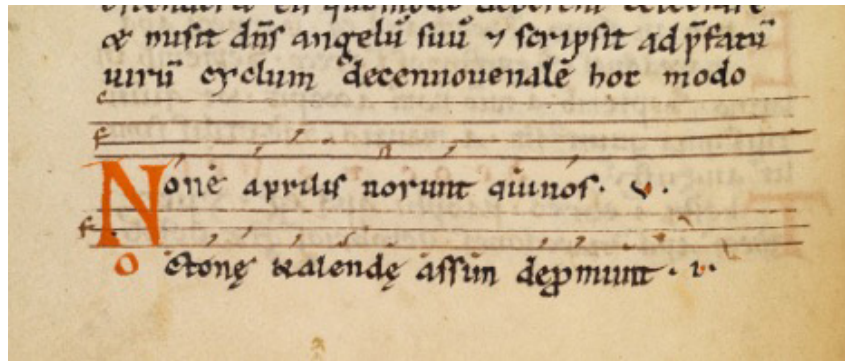 & misit dñs angelũ suũ ⁊ scripsit ad p̄fatũ
uirũ cyclum decennouenalẽ hoc modo
None aprilis norunt quinos · v ·
octonę kalendę assim depmunt · i ·